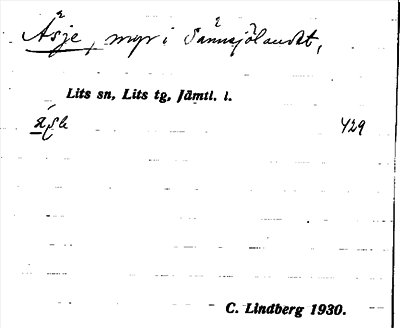 Åsje, myr i Sannsjölandet,
Lits sn, Lits tg, Jämtl. l.
429
C. Lindberg 1930.